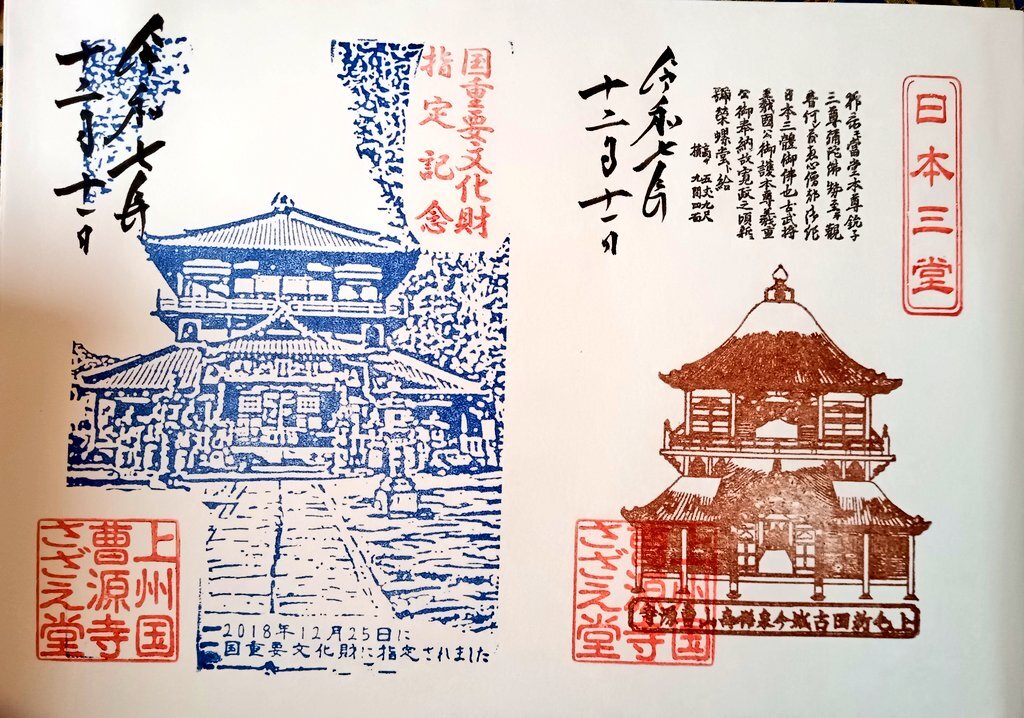 日本三堂
三尊彌陀佛勢至観
日本三體御佛也古武将
義國公御護本尊義重
公御奉納故寛政之頃新
號榮螺堂給
五丈九尺
九間四面
令和七年
十二月十一日
上毛新田古城今泉祥壽山曹源寺
上州国
曹源寺
さざえ堂
国重要文化財
指定記念
令和七年
十二月十一日
上州国
曹源寺
さざえ堂
2018年12月25日に
国重要文化財に指定されました